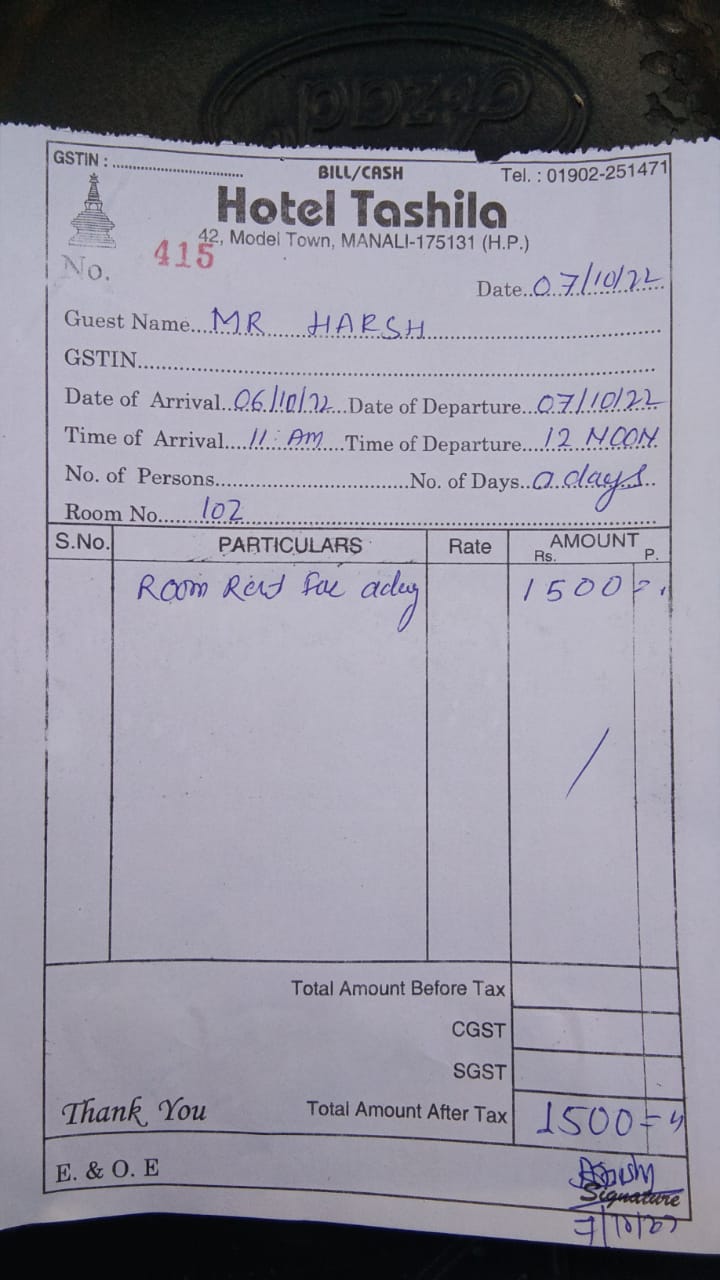 GSTIN : ................................
BILL/CASH
Tel. : 01902-251471
Hotel Tashila
42, Model Town, MANALI-175131 (H.P.)
No. 415
Date..07/10/22
Guest Name...MR HARSH
GSTIN
Date of Arrival..06/10/22...Date of Departure...07/10/22
Time of Arrival....11: AM...Time of Departure....12 NOON
No. of Persons..................No. of Days..a days..
Room No......102
S.No. PARTICULARS Rate AMOUNT
Rs. P.
Room Rent for aday 1500=
Total Amount Before Tax
CGST
SGST
Thank You Total Amount After Tax 1500=
E. & O. E
Signature